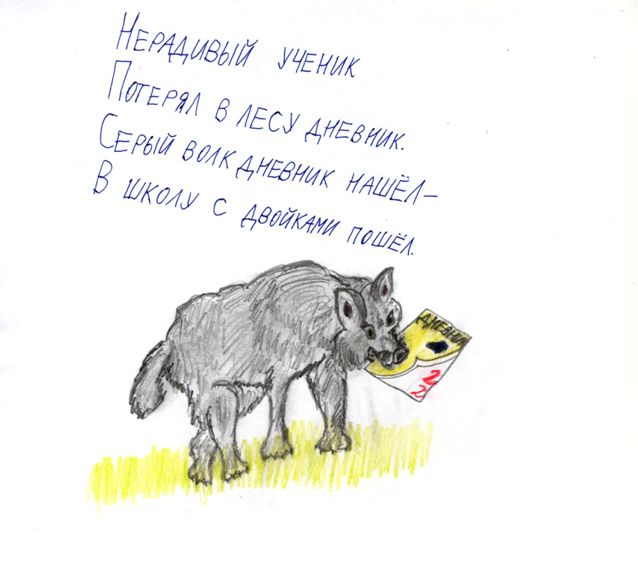 Нерадивый ученик
Потерял в лесу дневник.
Серый волк дневник нашёл–
В школу с двойками пошёл.
ДНЕВНИК
2
2